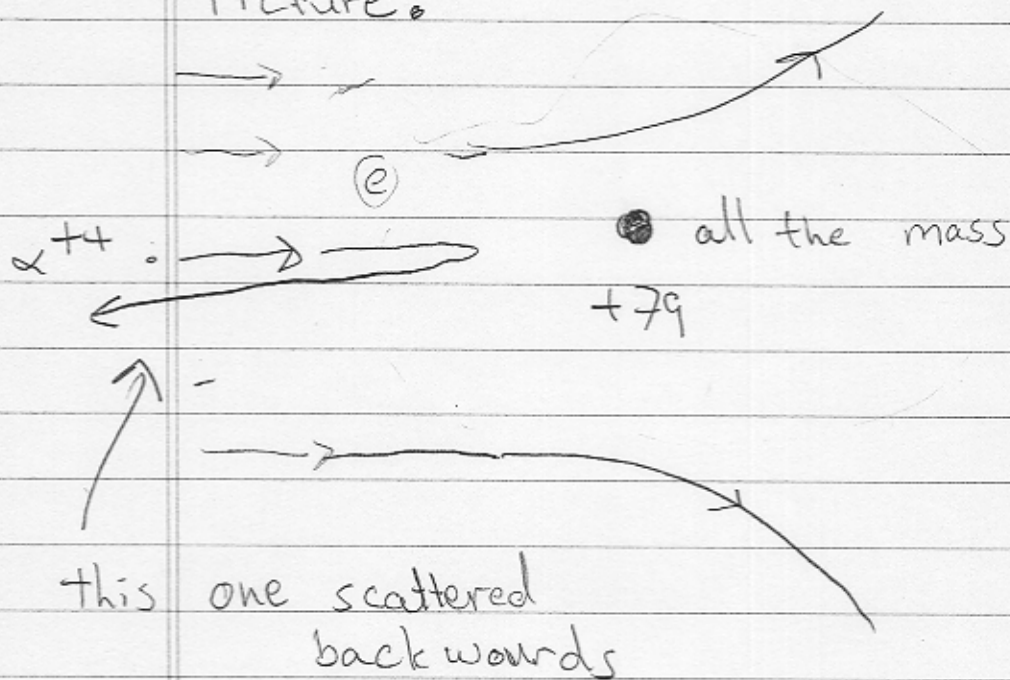 Picture.
e
α++ . all the mass
+79
this one scattered
backwourds